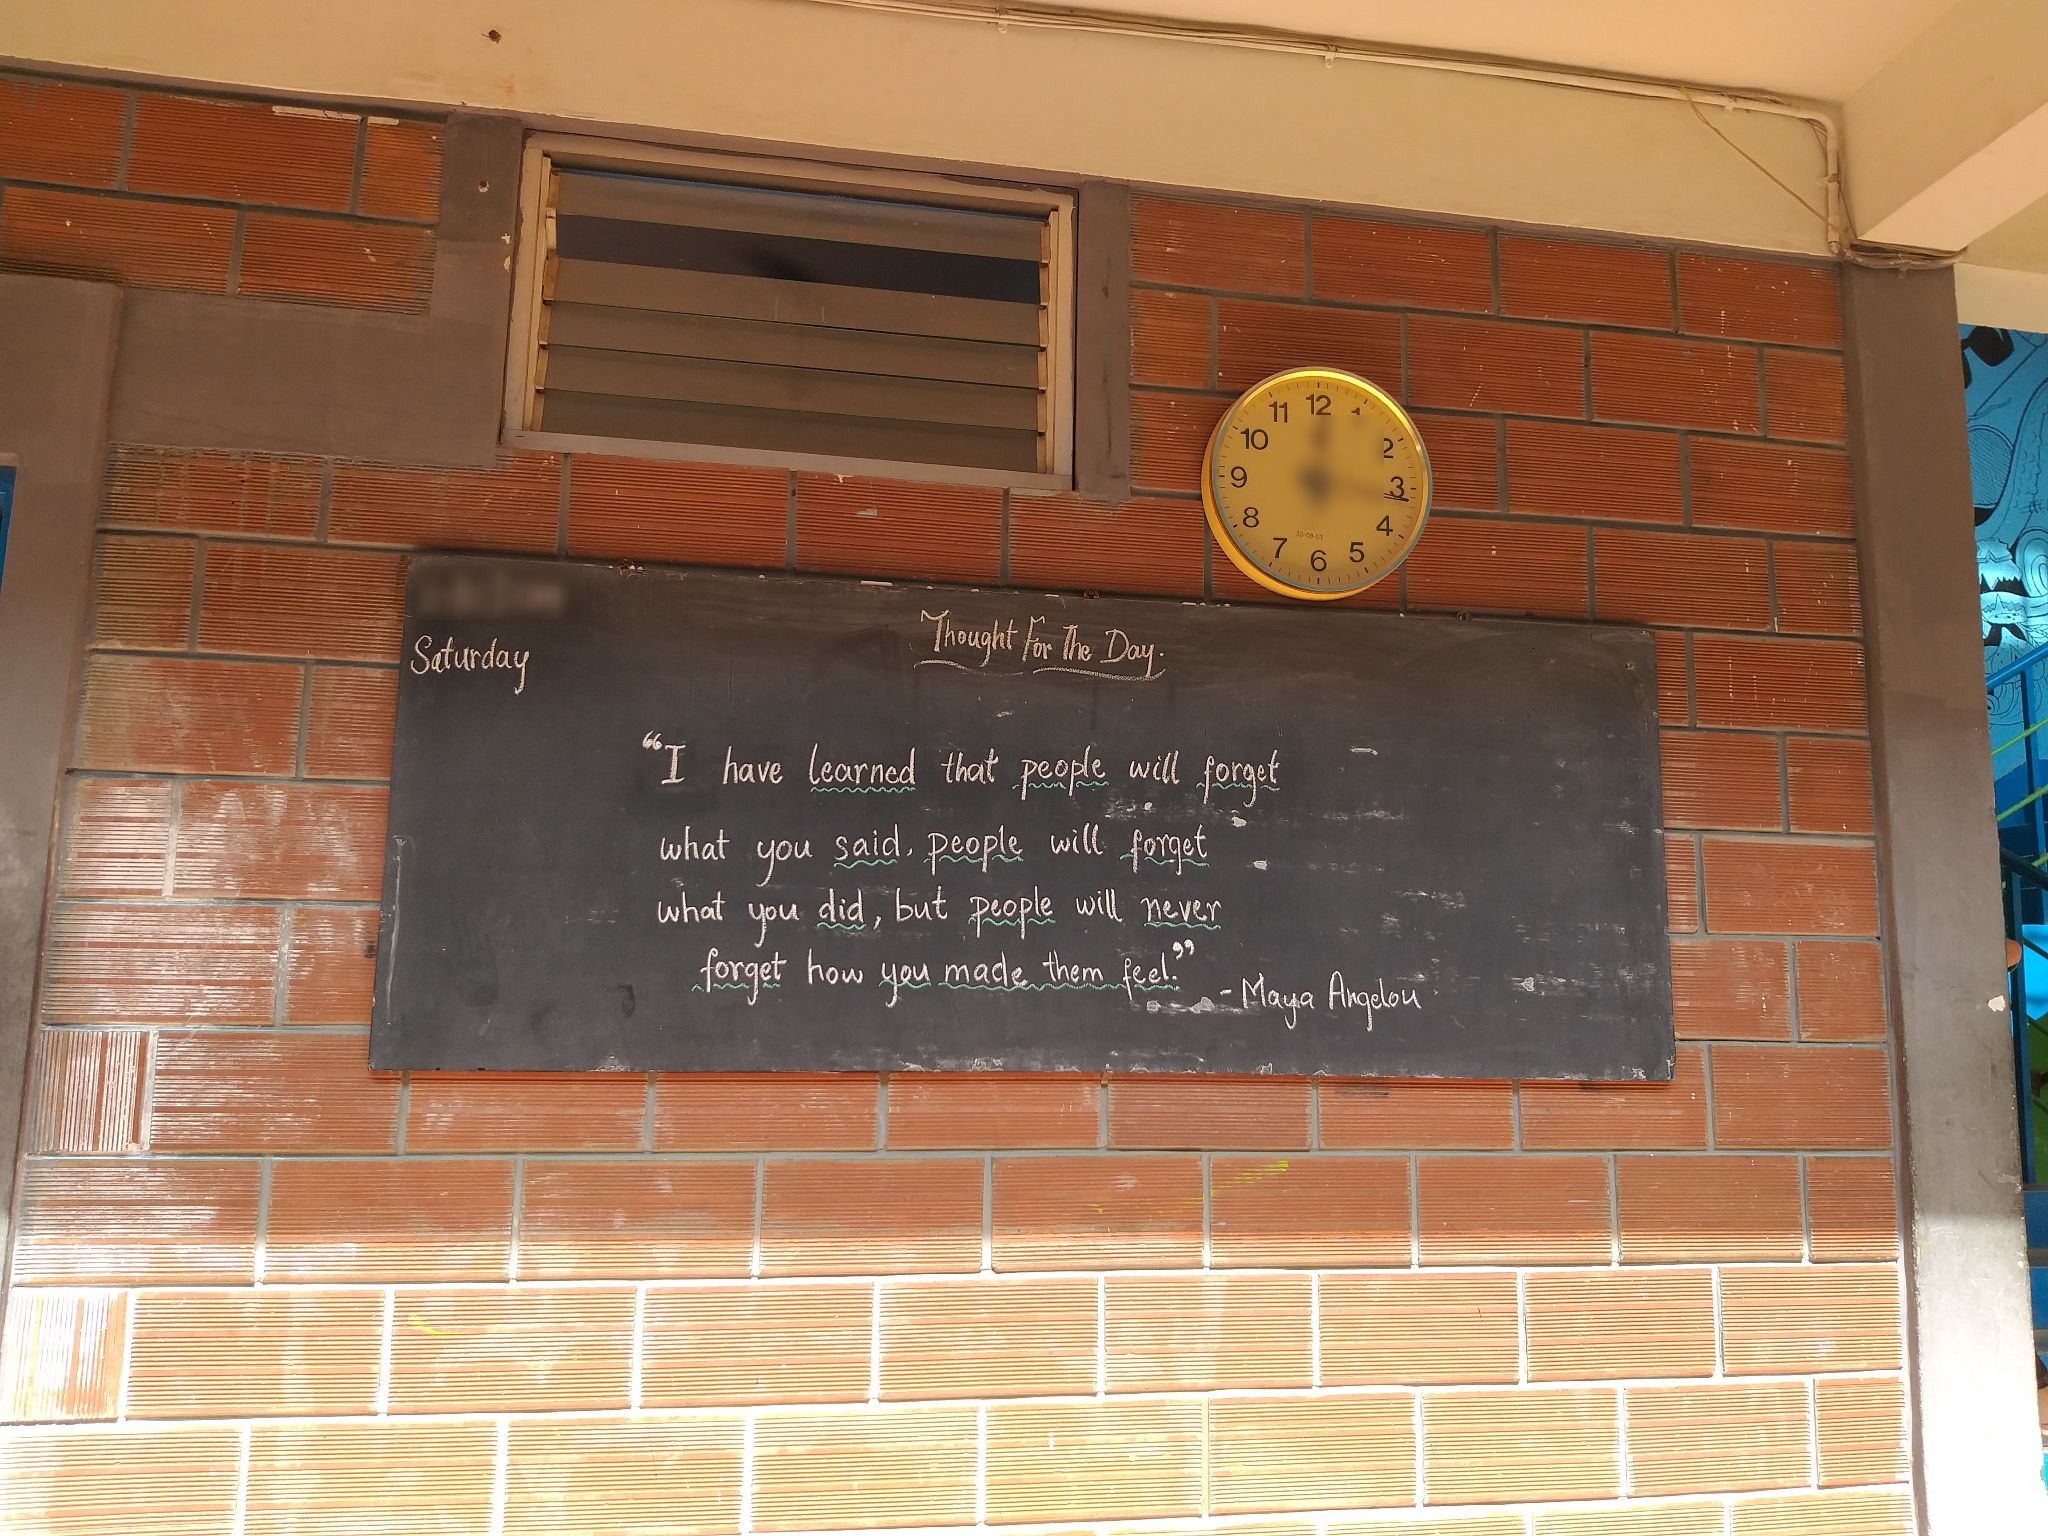 11 12 1
10 2
9 3
8 4
7 6 5
Saturday
Thought For The Day.
“I have learned that people will forget
what you said, people will forget
what you did, but people will never
forget how you made them feel.”
- Maya Angelou